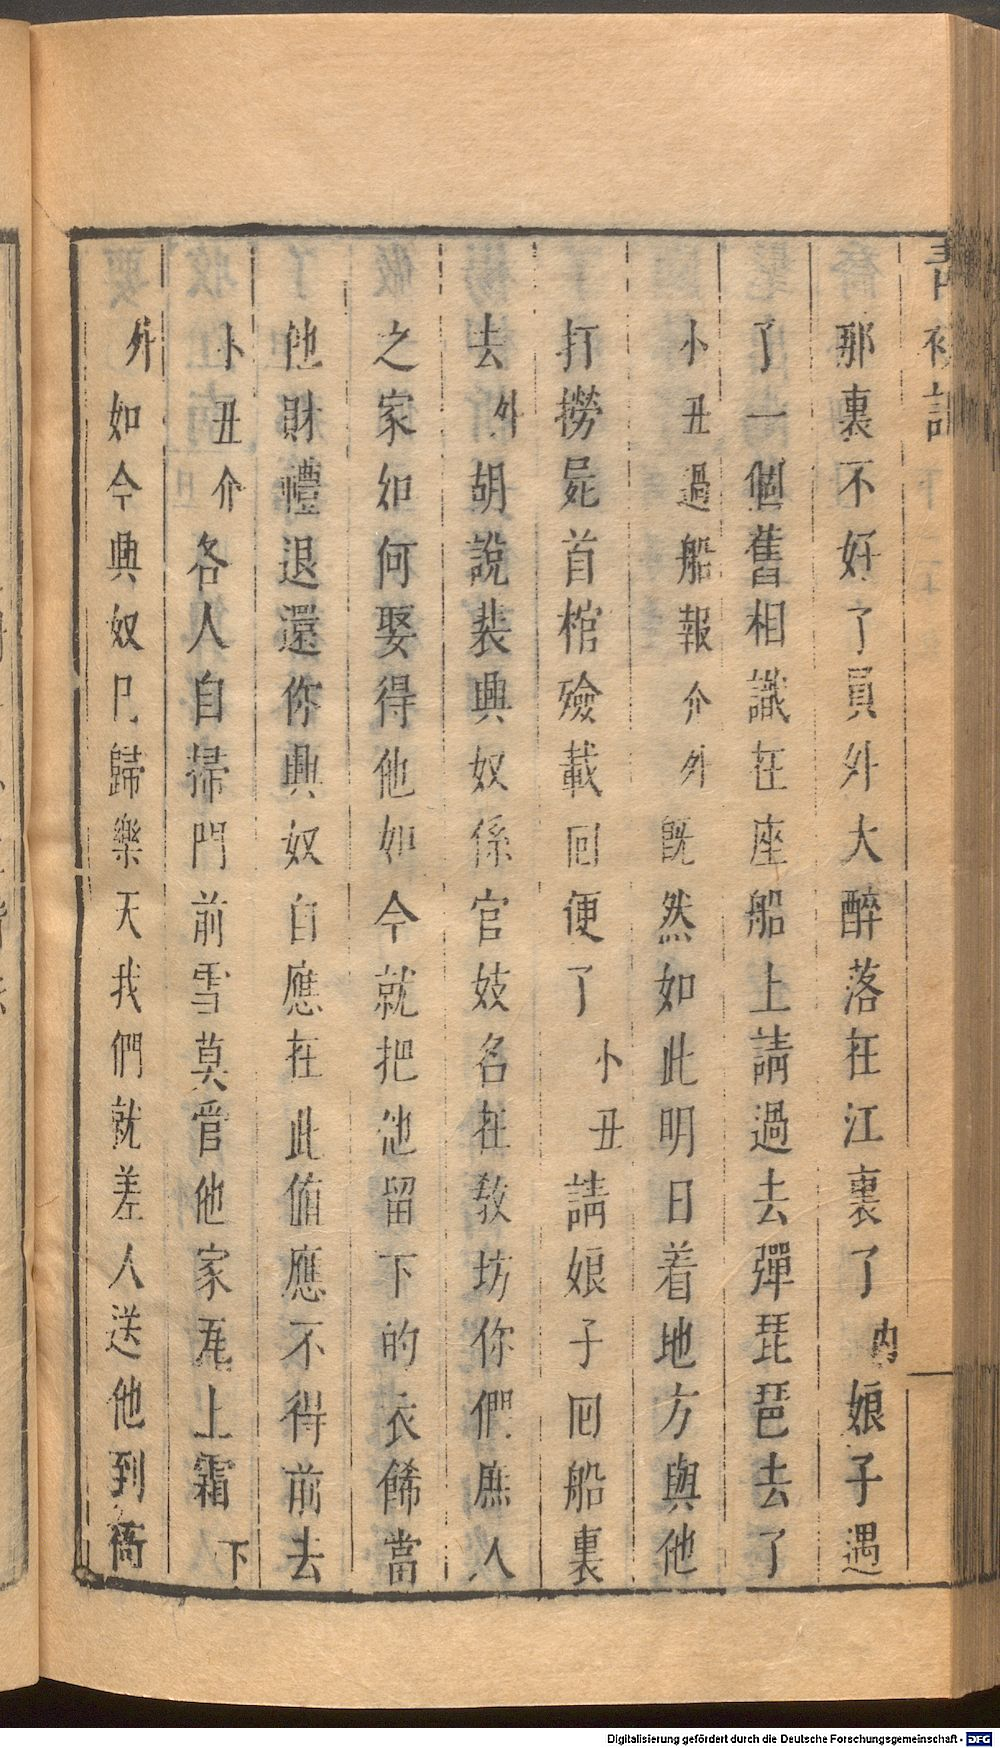 青衫記
那裏不好了員外大醉落在江裏了內娘子遇
了一個舊相識在座船上請過去彈琵琶去了
小丑過船報介外旣然如此明日着地方與他
打撈屍首棺殮載回便了小丑請娘子回船裏
去外胡說裴興奴係官妓名在敎坊你們庶人
之家如何娶得他如今就把他留下的衣餙當
他財禮退還你興奴自應在此侑應不得前去
小丑介各人自掃門前雪莫管他家瓦上霜下
外如今興奴已歸樂天我們就差人送他到衙
Digitalisierung gefördert durch die Deutsche Forschungsgemeinschaft - DFG